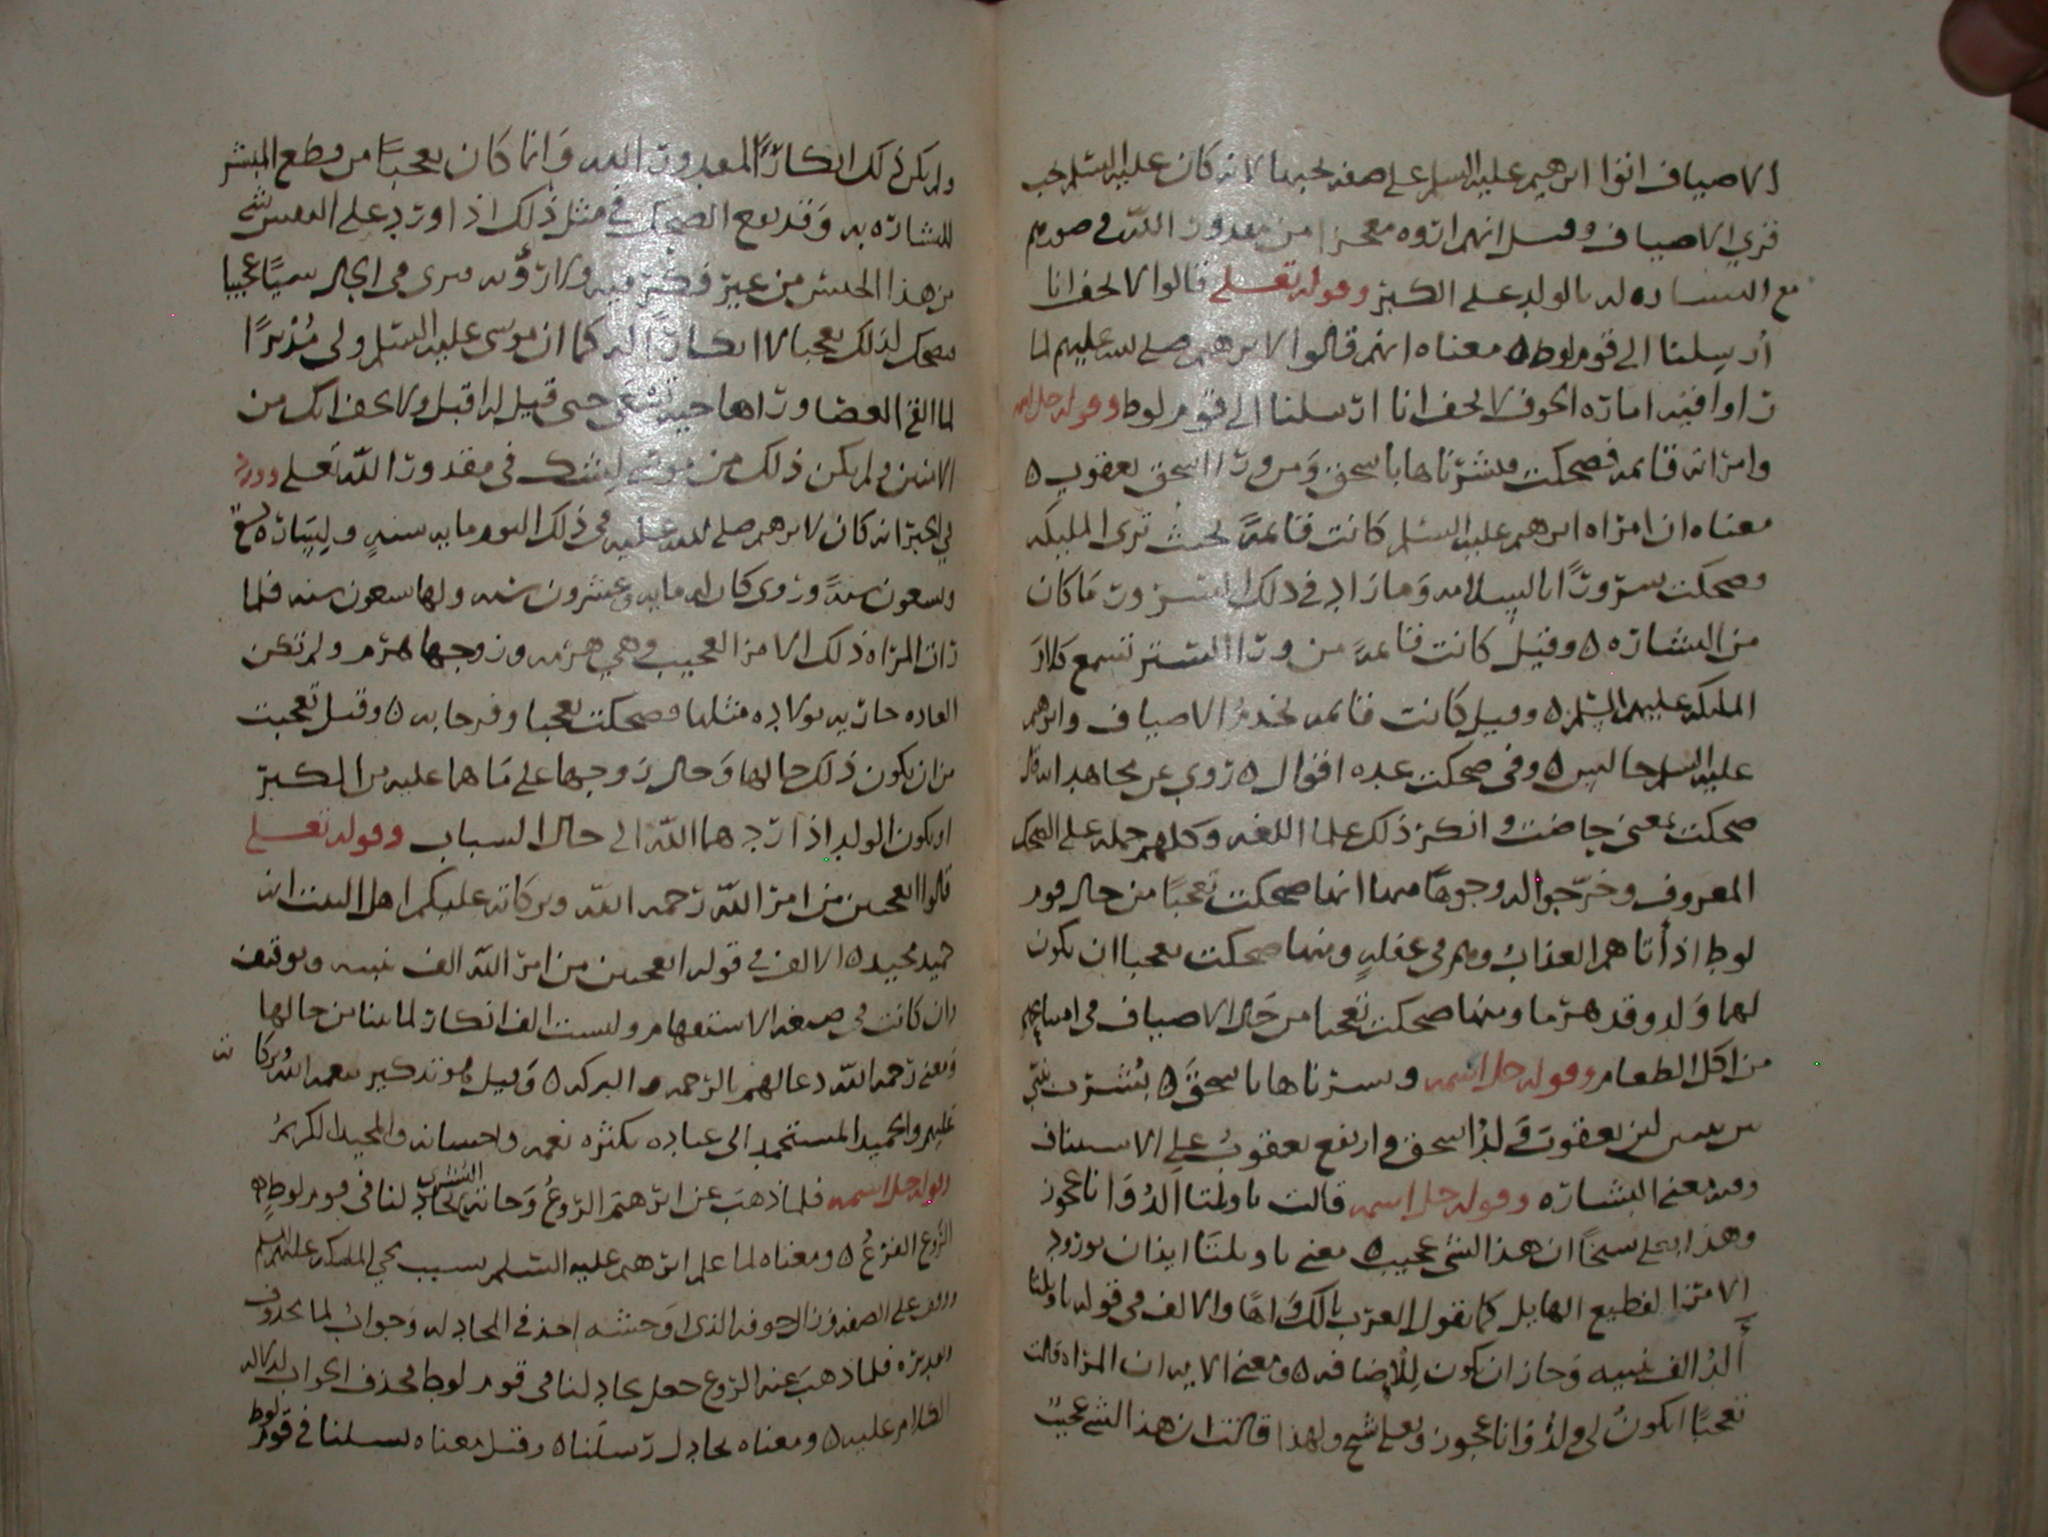 الاضياف اتوا ابرهيم عليه السلم على صفه يحبها لانه كان عليه السلم يحب
قري الاضياف وقيل انهم اروه معجزا من مقدور الله في صورهم
مع البشاره له بالولد على الكبر وقوله تعلى قالوا لا تخف انا
أرسلنا الى قوم لوط ٥ معناه انهم قالوا لابرهيم صلى الله عليهم لما
راوا فيه اماره الخوف لا تخف انا ارسلنا الى قوم لوط وقوله جل اسمه
وامراته قائمه فضحكت فبشرناها باسحق ومن ورا اسحق يعقوب ٥
معناه ان امراه ابرهيم عليه السلم كانت قائمةً بحيث ترى المليكه
فضحكت سرورًا بالسلامه وما زاد في ذلك السرور بما كان
من البشاره ٥ وقيل كانت قائمةً من ورا الستر تسمع كلام
المليكه عليهم السلم ٥ وقيل كانت قائمه تخدمُ الاضياف وابرهيم
عليه السلم جالس ٥ وفي ضحكت عده اقوال ٥ روي عن مجاهد انه قال
ضحكت بمعنى حاضت وانكر ذلك علما اللغه وكلهم حمله على الضحك
المعروف وخرّجوا له وجوهًا منها انها ضحكت تعجبًا من حال قوم
لوط اذ أتاهم العذاب وهم في غفلهٍ ومنها ضحكت تعجبا ان يكون
لهما وَلد وقد هرما ومنها ضحكت تعجبا من حَال الاضياف في امتناعهم
من اكل الطعام وقوله جل اسمه وبشرناها باسحقَ ٥ بُشّرت بنبيّ
بين نبيين لان يعقوب وَلدُ اسحق وارتفع يعقوبُ على الاستيناف
وفيه معنى البشاره وقوله جل اسمه قالت ياويلتا االدُ وَانا عجوز
وهذا بعلى شيخًا ان هذا لشى عجيب ٥ معنى ياويلتَا ايذان بورود
الامر الفظيع الهايل كما تقول العرب يالك وَاهًا والالف في قوله ياويلتا
أَلدُ الف تنبيه وَجاز ان تكون لِلْاِضافه ٥ ومعنى الايه ان المراه قالت
تعجبًا ايكونُ لي ولدٌ وَانا عجوز وبعلى شيخ ولهذا قالت ان هذا لشي عجيب
ولم يكن ذلك انكارًا لمقدور الله وَانما كان تعجبًا من قطع المبشر
للبشاره به وَقد يقع الضحك في مثل ذلك اذا ورد على النفس شى
من هذا الجنس من غير فكر فيه ولا رؤيه فيرى في الحال شيًا عجيبا
فيضحك لذلك تعجبا لا انكارًا له كما ان موسى عليه السلم ولى مُدْبرًا
لما القى العصا ورآها حيةً تسعى حتى قيل له اقبل ولا تخف انك من
الامنين ولم يكن ذلك من موسى لِيشك في مقدور الله تعلى وورد
في الخبر انه كان لابرهيم صلى الله عليه في ذلك اليوم مايه سنهٍ ولِسَاره تسعٌ
وتسعون سنهً وروى كان له مايه وعشرون سنه ولها تسعون سنه فلما
رات المراه ذلك الامر العجيب وهي هرمه وزوجها هرم ولم تكن
العاده جاريه بولاده مثلها ضحكت تعجبا وفرحا به ٥ وقيل تعجبت
من ان يكون ذلك حالها وَحال زوجها على مَا هما عليه من الكبر
او يكون الولد اذا ردهما الله الى حال الشباب وقوله تعلى
قالوا اتعجبين من امر الله رحمه الله وبركاته عليكم اهل البيت انه
حميد مجيد ٥ الالف في قوله اتعجبين من امر الله الف تنبيه وتوقيف
وان كانت في صيغه الاستفهام وليست الف انكار لما بينا من حالها
وَمعنى رحمه الله دعا لهم بالرحمه والبركه ٥ وَقيل هو تذكير بنعمه الله وبركاته
عليهم والحميد المستحمد الى عباده بكثره نعمه واحسانه والمجيد الكريمُ
وقوله جل اسمه فلما ذهبَ عن ابرهيمَ الرّوعُ وَجاته البُشْرى يُجادِلنا في قوم لوطٍ ٥
الرَّوع الفزعُ ٥ ومعناه لما علم ابرهيم عليه السلم سبب مجي المليكه عليهم السلم
على الصفه وزال خوفه الذي اوَحشه اخذ في المجادله وَجوابُ لما محذوف
تقديره فلما ذهبَ عنه الروع جعل يجادلنا في قوم لوط فحذف الجواب لدلاله
الكلام عليه ٥ ومعناه يجادل رسلَنا ٥ وقيل معناه يسلنا في قوم لوط